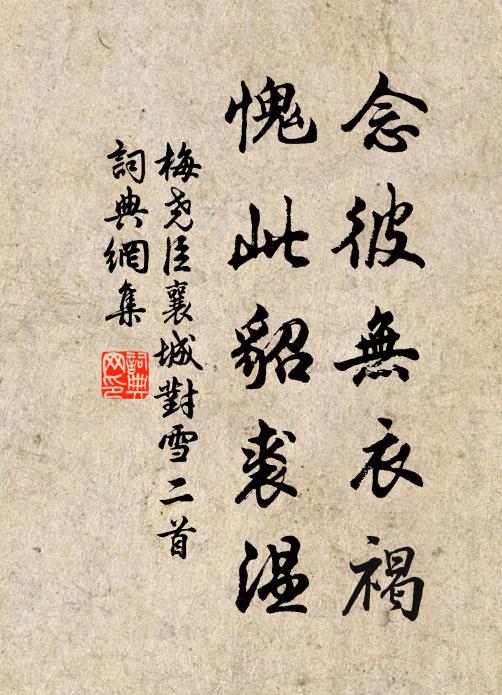 念彼無衣褐
愧此貂裘温
梅尧臣襄城對雪二首
詞典網集
詞典
网印